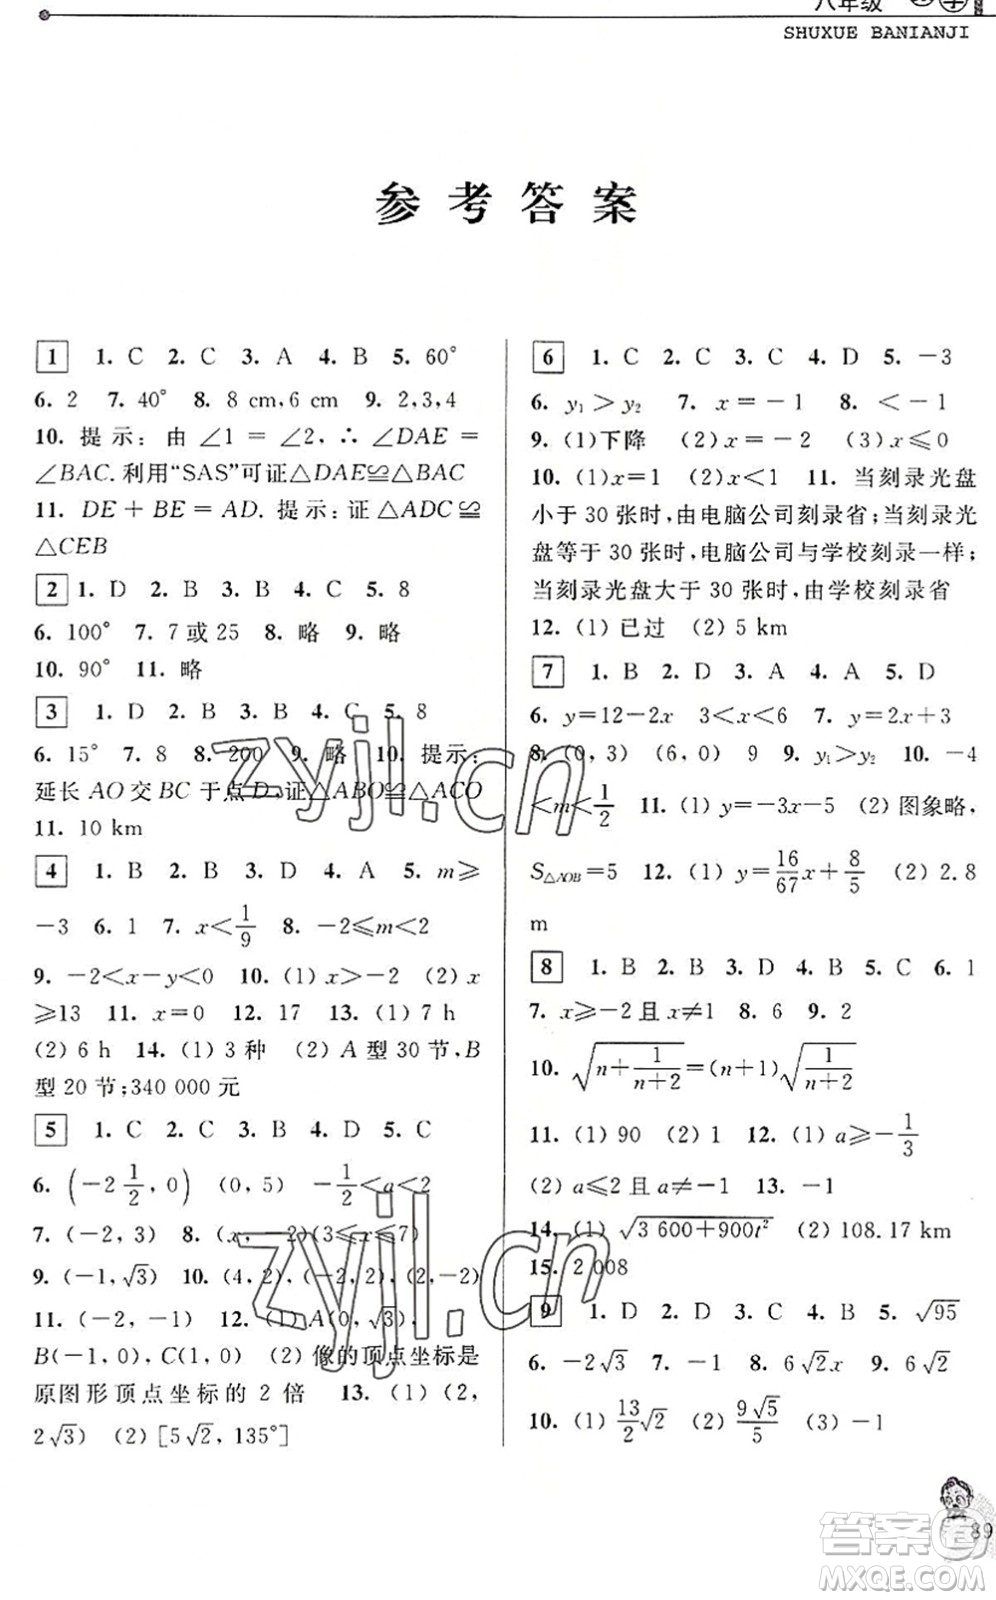 八年级
SHUXUE BANIANJI
参考答案
1 1. C 2. C 3. A 4. B 5. 60°
6. 2 7. 40° 8. 8 cm,6 cm 9. 2,3,4
10. 提示:由 ∠1 = ∠2, ∴ ∠DAE =
∠BAC. 利用“SAS”可证△DAE≌△BAC
11. DE + BE = AD. 提示:证△ADC≌
△CEB
2 1. D 2. B 3. B 4. C 5. 8
6. 100° 7. 7 或 25 8. 略 9. 略
10. 90° 11. 略
3 1. D 2. B 3. B 4. C 5. 8
6. 15° 7. 8 8. 200 9. 略 10. 提示:
延长 AO 交 BC 于点 D,证△ABO≌△ACO
11. 10 km
4 1. B 2. B 3. D 4. A 5. m≥
-3 6. 1 7. x<1/9 8. -2≤m<2
9. -2<x-y<0 10. (1) x>-2 (2) x
≥13 11. x=0 12. 17 13. (1) 7 h
(2) 6 h 14. (1) 3 种 (2) A 型 30 节,B
型 20 节;340 000 元
5 1. C 2. C 3. B 4. D 5. C
6. (-2 1/2, 0) (0, 5) -1/2<a<2
7. (-2, 3) 8. (x, -2)(3≤x≤7)
9. (-1,√3) 10. (4,2),(-2,2),(2,-2)
11. (-2,-1) 12. (1) A(0,√3),
B(-1,0),C(1,0) (2) 像的顶点坐标是
原图形顶点坐标的 2 倍 13. (1) (2,
2√3) (2) [5√2,135°]
6 1. C 2. C 3. C 4. D 5. -3
6. y₁>y₂ 7. x=-1 8. <-1
9. (1)下降 (2) x=-2 (3) x≤0
10. (1)x=1 (2)x<1 11. 当刻录光盘
小于 30 张时,由电脑公司刻录省;当刻录光
盘等于 30 张时,电脑公司与学校刻录一样;
当刻录光盘大于 30 张时,由学校刻录省
12. (1) 已过 (2) 5 km
7 1. B 2. D 3. A 4. A 5. D
6. y=12-2x 3<x<6 7. y=2x+3
8. (0, 3) (6, 0) 9 9. y₁>y₂ 10. -4
<m<1/2 11. (1) y=-3x-5 (2) 图象略,
S△AOB=5 12. (1) y=16/67x+8/5 (2) 2.8
m
8 1. B 2. B 3. D 4. B 5. C 6. 1
7. x≥-2 且 x≠1 8. 6 9. 2
10. √(n+1/(n+2))=(n+1)√(1/(n+2))
11. (1) 90 (2) 1 12. (1) a≥-1/3
(2) a≤2 且 a≠-1 13. -1
14. (1) √(3 600+900t²) (2) 108.17 km
15. 2 008
9 1. D 2. D 3. C 4. B 5. √95
6. -2√3 7. -1 8. 6√2x 9. 6√2
10. (1) 13/2√2 (2) 9√5/5 (3) -1
89
zyjl.cn
zyjl.cn
答案圈
MXQE.COM